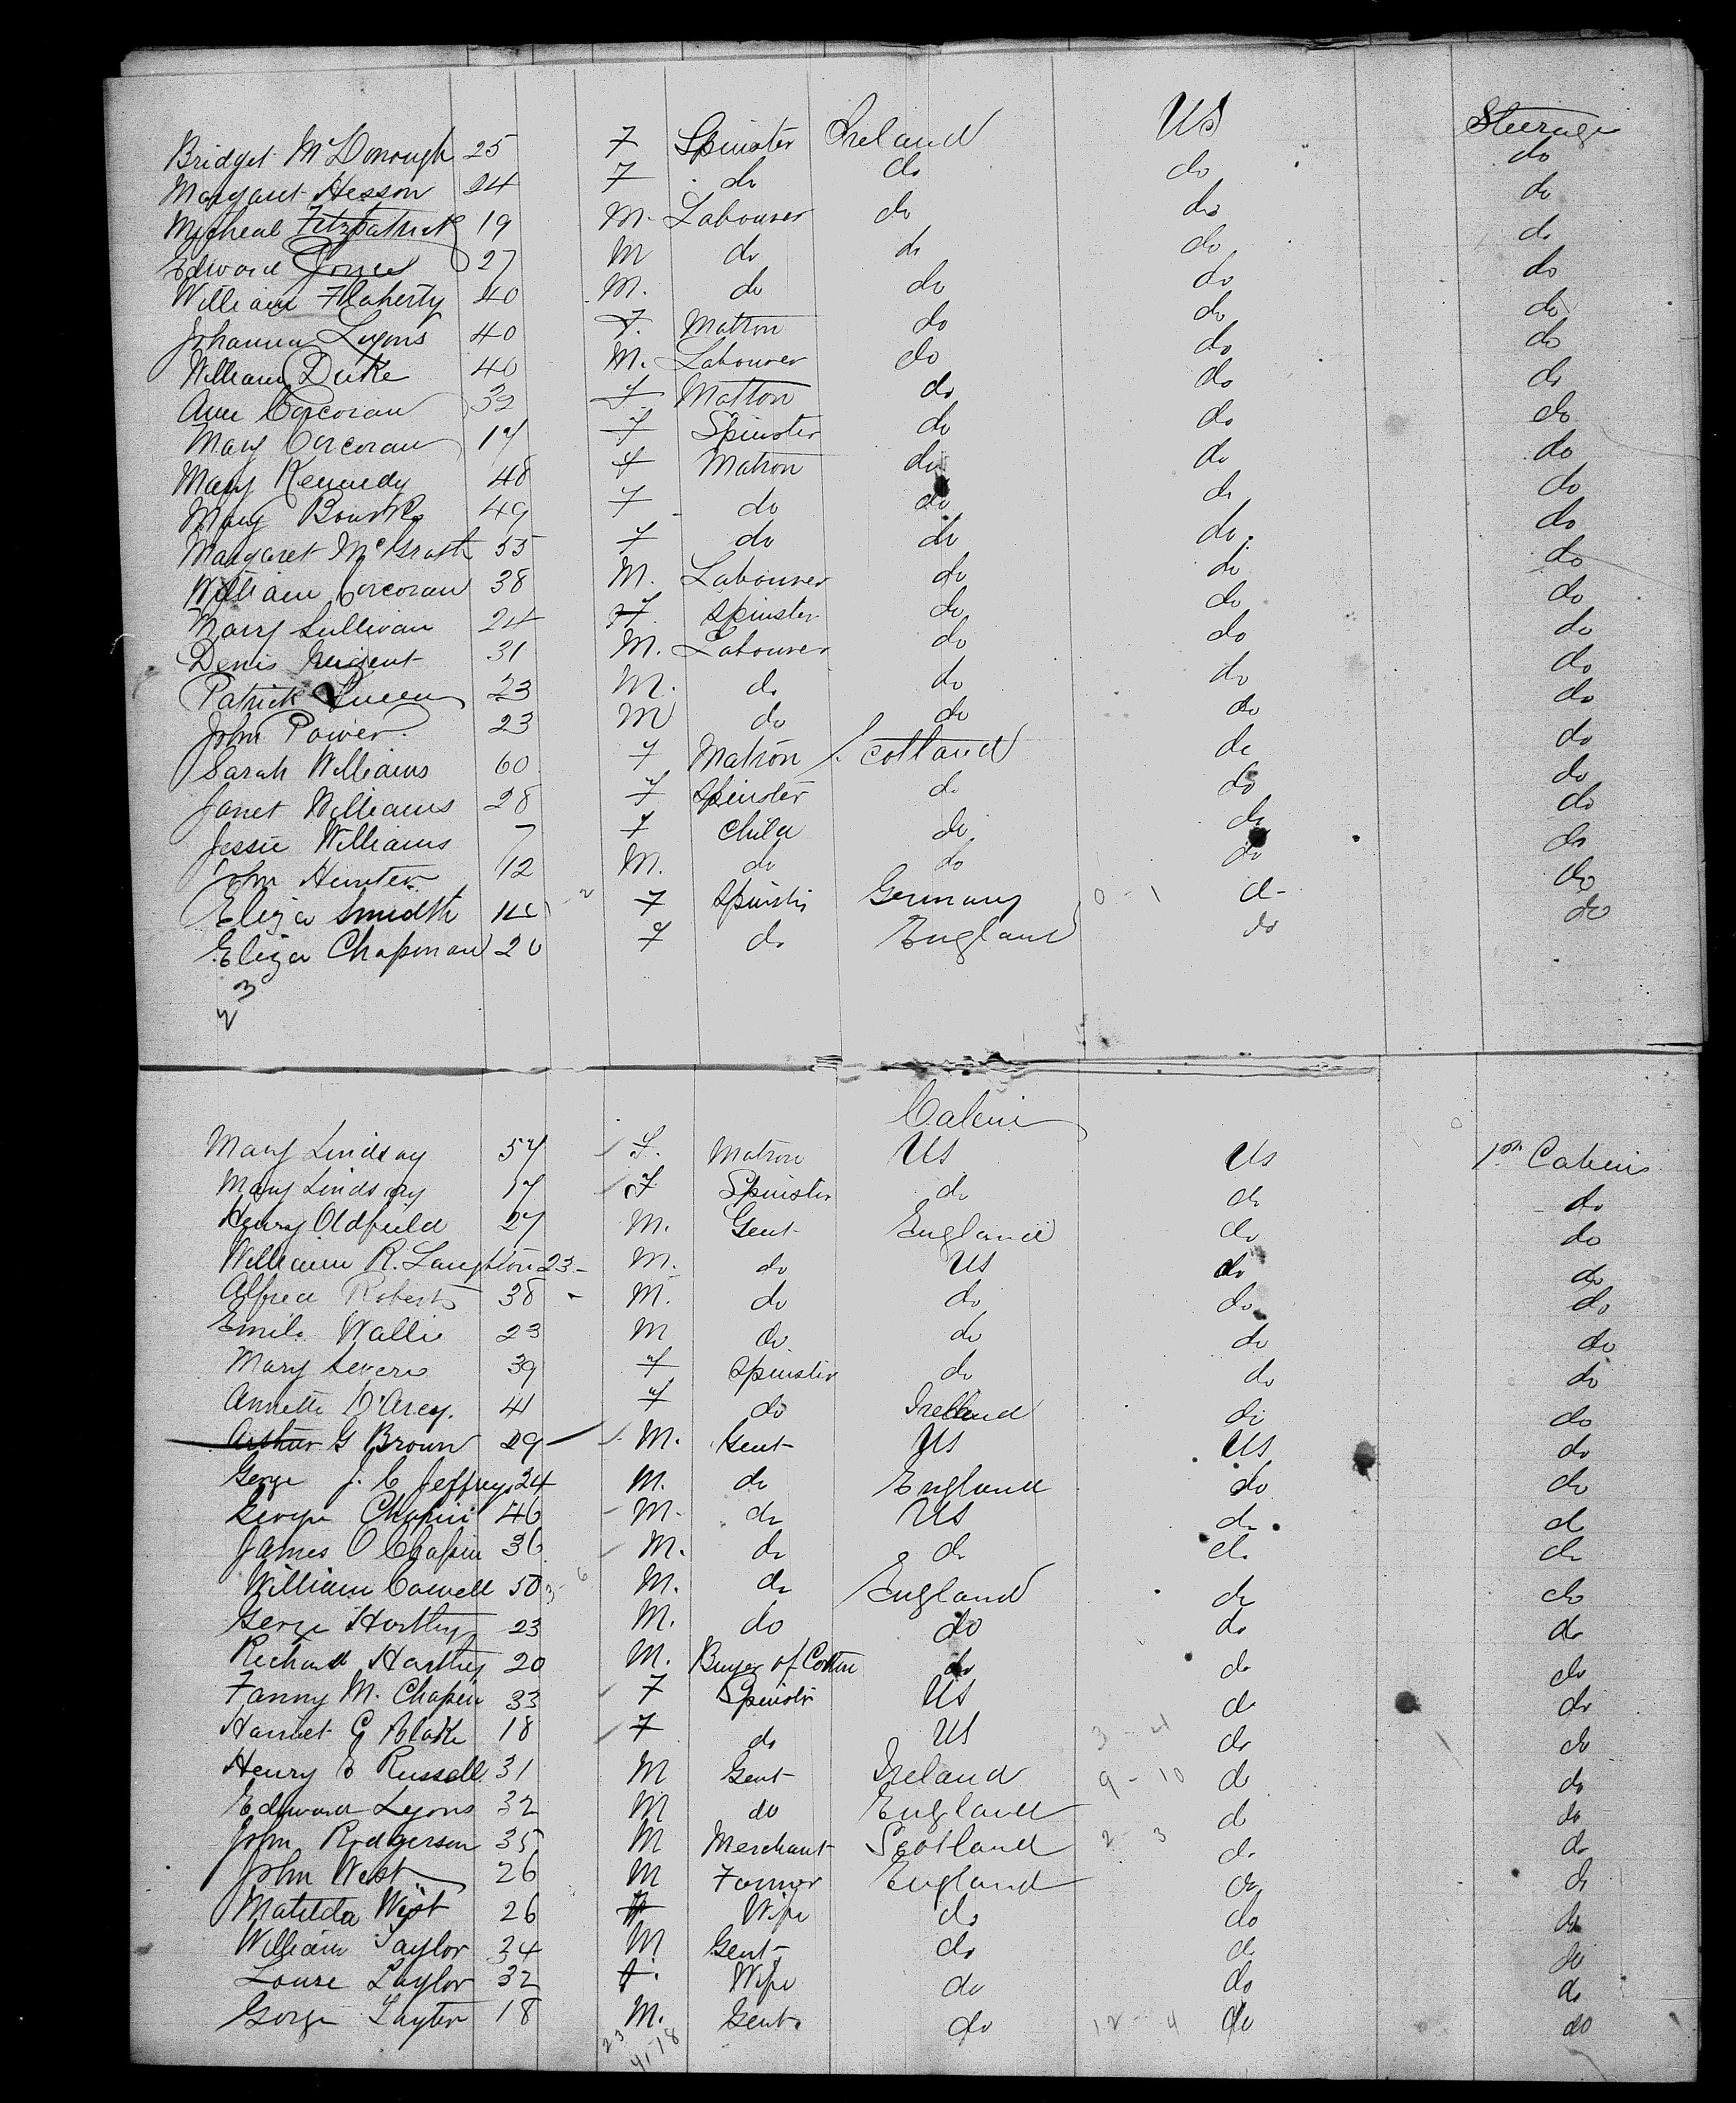 Bridget McDonough 25 F Spinster Ireland US Steerage
Margaret Hesson 24 F do do do do
Micheal Fitzpatrick 19 M. Labourer do do do
Edward Jones 27 M do do do do
William Flaherty 40 M. do do do do
Johanna Lyons 40 F. Matron do do do
William Duke 40 M. Labourer do do do
Ann Corcoran 32 F Matron do do do
Mary Corcoran 17 F Spinster do do do
Mary Kennedy 48 F Matron do do do
Mary Bourke 49 F do do do do
Margaret McGrath 55 F do do do do
William Corcoran 38 M. Labourer do do do
Mary Sullivan 24 F. Spinster do do do
Denis Nugent 31 M. Labourer do do do
Patrick 23 M. do do do do
John Power 23 M do do do do
Sarah Williams 60 F Matron Scotland do do
Janet Williams 28 F Spinster do do do
Jessie Williams 7 F Child do do do
John Hunter 12 M. do do do do
Eliza Smidth F Spinster Germany 0 - 1 do do
Eliza Chapman 20 F do England do do
23
Cabin
Mary Lindsay 57 F. Matron US US 1st Cabin
Mary Lindsay 17 F Spinster do do do
Henry Oldfield 27 M. Gent England do do
William R. Laughton 23 M. do US do do
Alfred Roberts 38 M. do do do do
Emile Wallis 23 M do do do do
Mary Severs 39 F Spinster do do do
Annette D'Arcy. 41 F do Ireland do do
Arthur G Brown 29 M. Gent US US do
George J. C Jeffreys 24 M. do England do do
George Chapin 46 M. do US do do
James O Chapin 36 M. do do do do
William Cowell 50 3 - 6 M. do England do do
George Hartley 23 M. do do do do
Richard Hartley 20 M. Buyer of Cotton do do do
Fanny M. Chapin 33 F Spinster US do do
Harriet G Blake 18 F do US 3 - 4 do do
Henry E Russell 31 M Gent Ireland 9 - 10 do do
Edward Lyons 32 M do England do do
John Rodgerson 35 M Merchant Scotland 2 - 3 do do
John West 26 M Farmer England do do
Matilda West 26 F Wife do do do
William Taylor 34 M Gent do do do
Louise Taylor 32 F. Wife do do do
George Taylor 18 M. Gent. do 12 - 4 do do
23